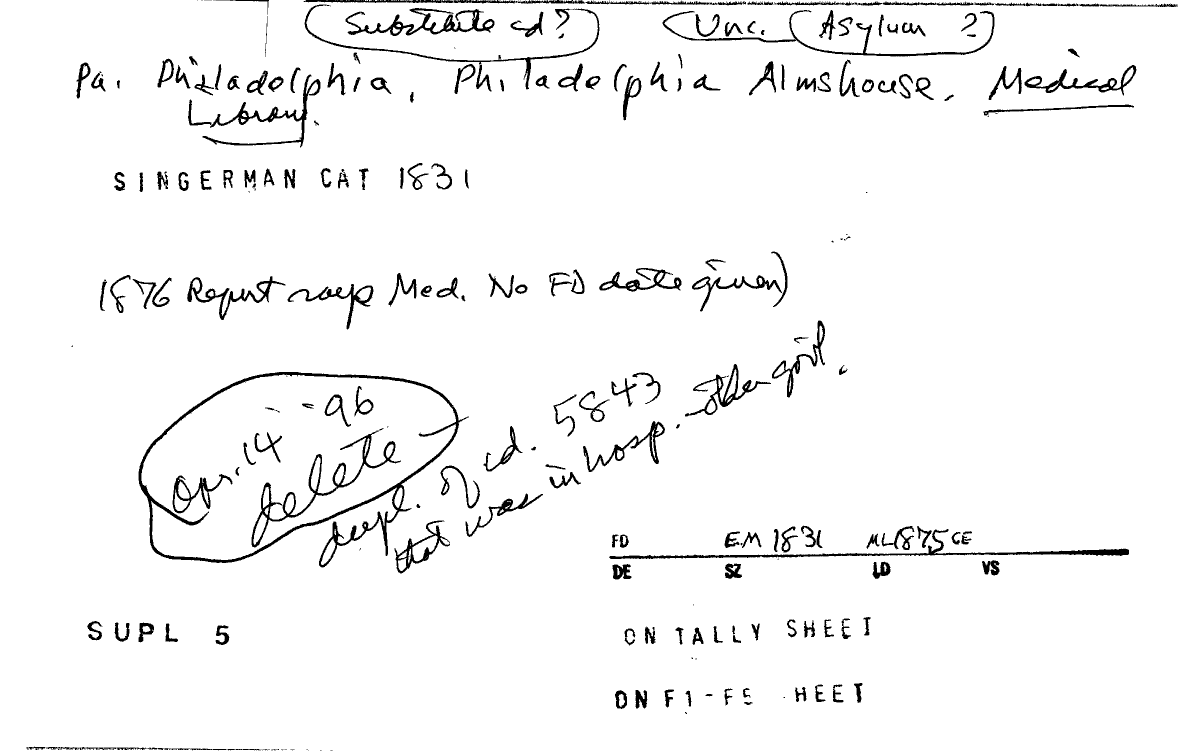 Substitute cd? Unc. Asylum ?
Pa. Philadelphia, Philadelphia Almshouse, Medical
Library.
SINGERMAN CAT 1831
1876 Report says Med. No FD date given)
14 -96
delete –
dupl. of cd. 5843
that was in hosp. - other govt.
FD EM 1831 ML1875 CE
DE SZ LD VS
SUPL 5
ON TALLY SHEET
ON F1-F5 HEET